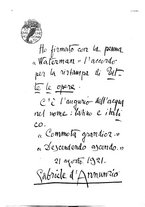 Ho firmato con la penna
"Waterman" l'accordo
per la ristampa di Tut-
te le opere.
C'è l'augurio dell'acqua
nel nome: latino e itali
co.
"Commota grandior"
"Descendendo ascendo."
21 agosto 1921.
Gabriele d'Annunzio